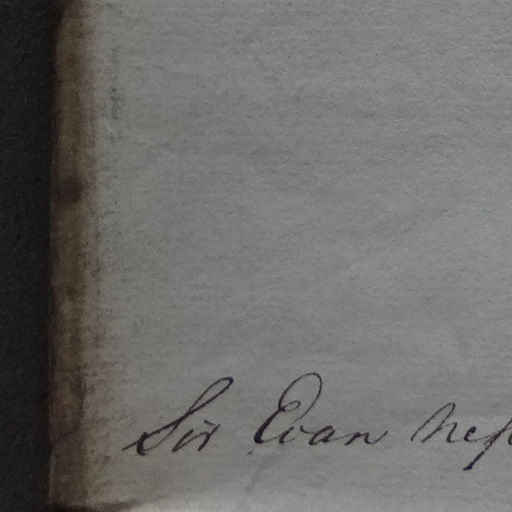 Sir Evan Nep